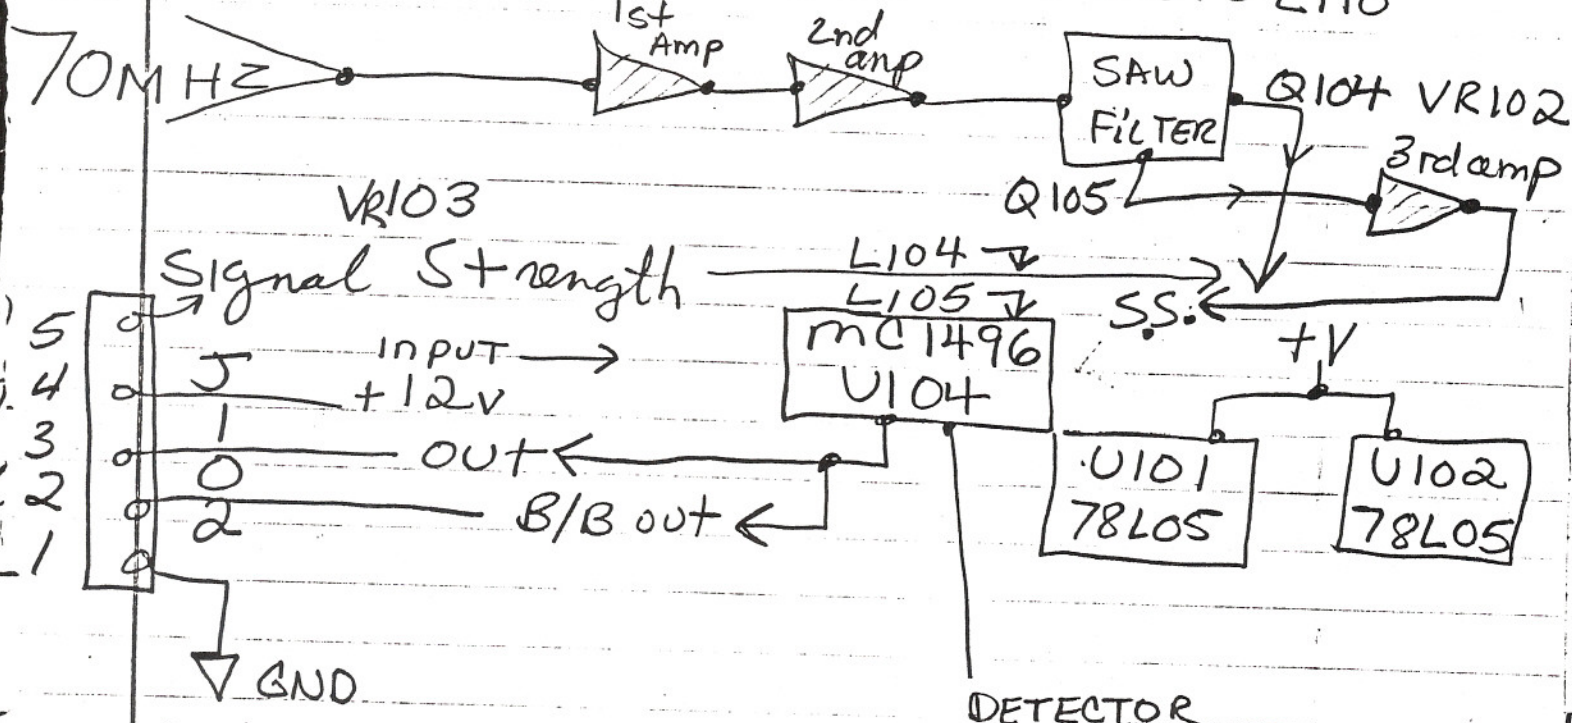 1st
Amp
2nd
anp
70MHZ
SAW
FILTER
Q104 VR102
3rd amp
Q105
VR103
Signal Strength
L104
L105
S.S.
5
4
3
2
1
J
1
0
2
INPUT
+12V
OUT
B/B OUT
GND
MC1496
U104
+V
U101
78L05
U102
78L05
DETECTOR